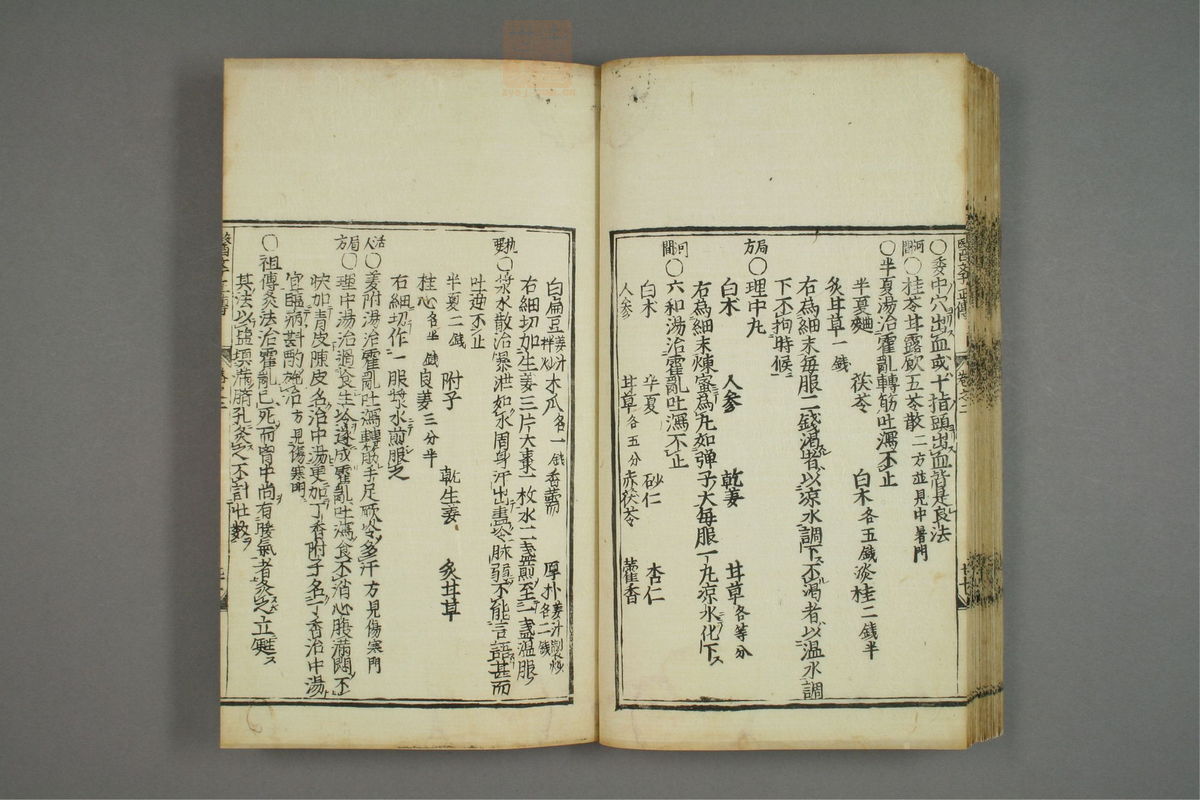 ○委中穴出血或十指頭出血皆是良法
河間○桂苓甘露飲五苓散二方並見中暑門
○半夏湯治霍亂轉筋吐瀉不止
半夏麯 茯苓 白术各五錢淡桂二錢半
炙甘草一錢
右為細末毎服二錢渇者以凉水調下不渇者以温水調
下不拘時候
局方○理中丸
白术 人參 乾姜 甘草各等分
右為細末煉蜜為丸如弹子大毎服一丸凉水化下
河間○六和湯治霍亂吐瀉不止
白术 半夏 砂仁 杏仁
人參 甘草各五分赤茯苓 藿香
白扁豆姜汁拌炒木瓜各一錢香薷 厚朴姜汁製炒各二錢
右細切加生姜三片大棗一枚水二盞煎至一盞温服
机要○漿水散治暴泄如水周身汗出盡冷脉弱不能言語甚而
吐逆不止
半夏二錢 附子 乾生姜 炙甘草
桂心各半錢良姜三分半
右細切作一服漿水煎服之
活人○姜附湯治霍亂吐瀉轉筋手足厥冷多汗方見傷寒門
局方○理中湯治過食生冷遂成霍亂吐瀉食不消心腹滿悶不
快加青皮陳皮名治中湯更加丁香附子名丁香治中湯
宜臨病斟酌施治方見傷寒門
○祖傳灸法治霍亂已死而胷中尚有暖氣者灸之立甦
其法以盐填滿臍孔灸之不計壮數